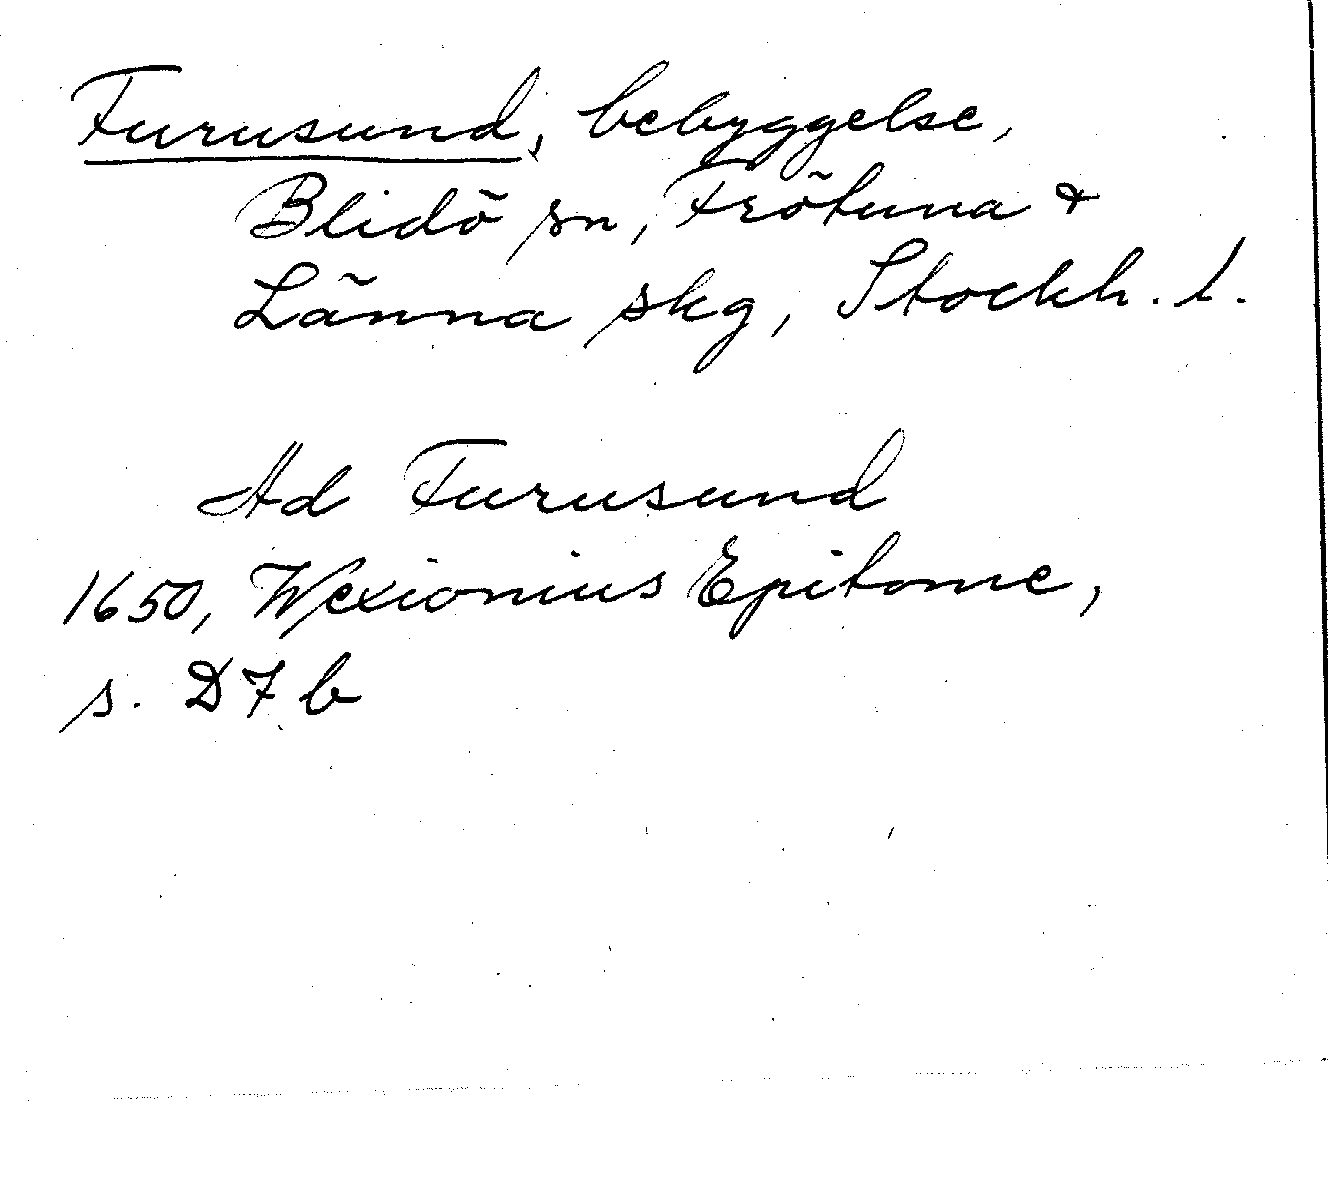 Furusund, bebyggelse,
Blidö sn, Frötuna &
Länna skg, Stockh. l.
Ad Furusund
1650, Wexionius Epitome,
s. D7b